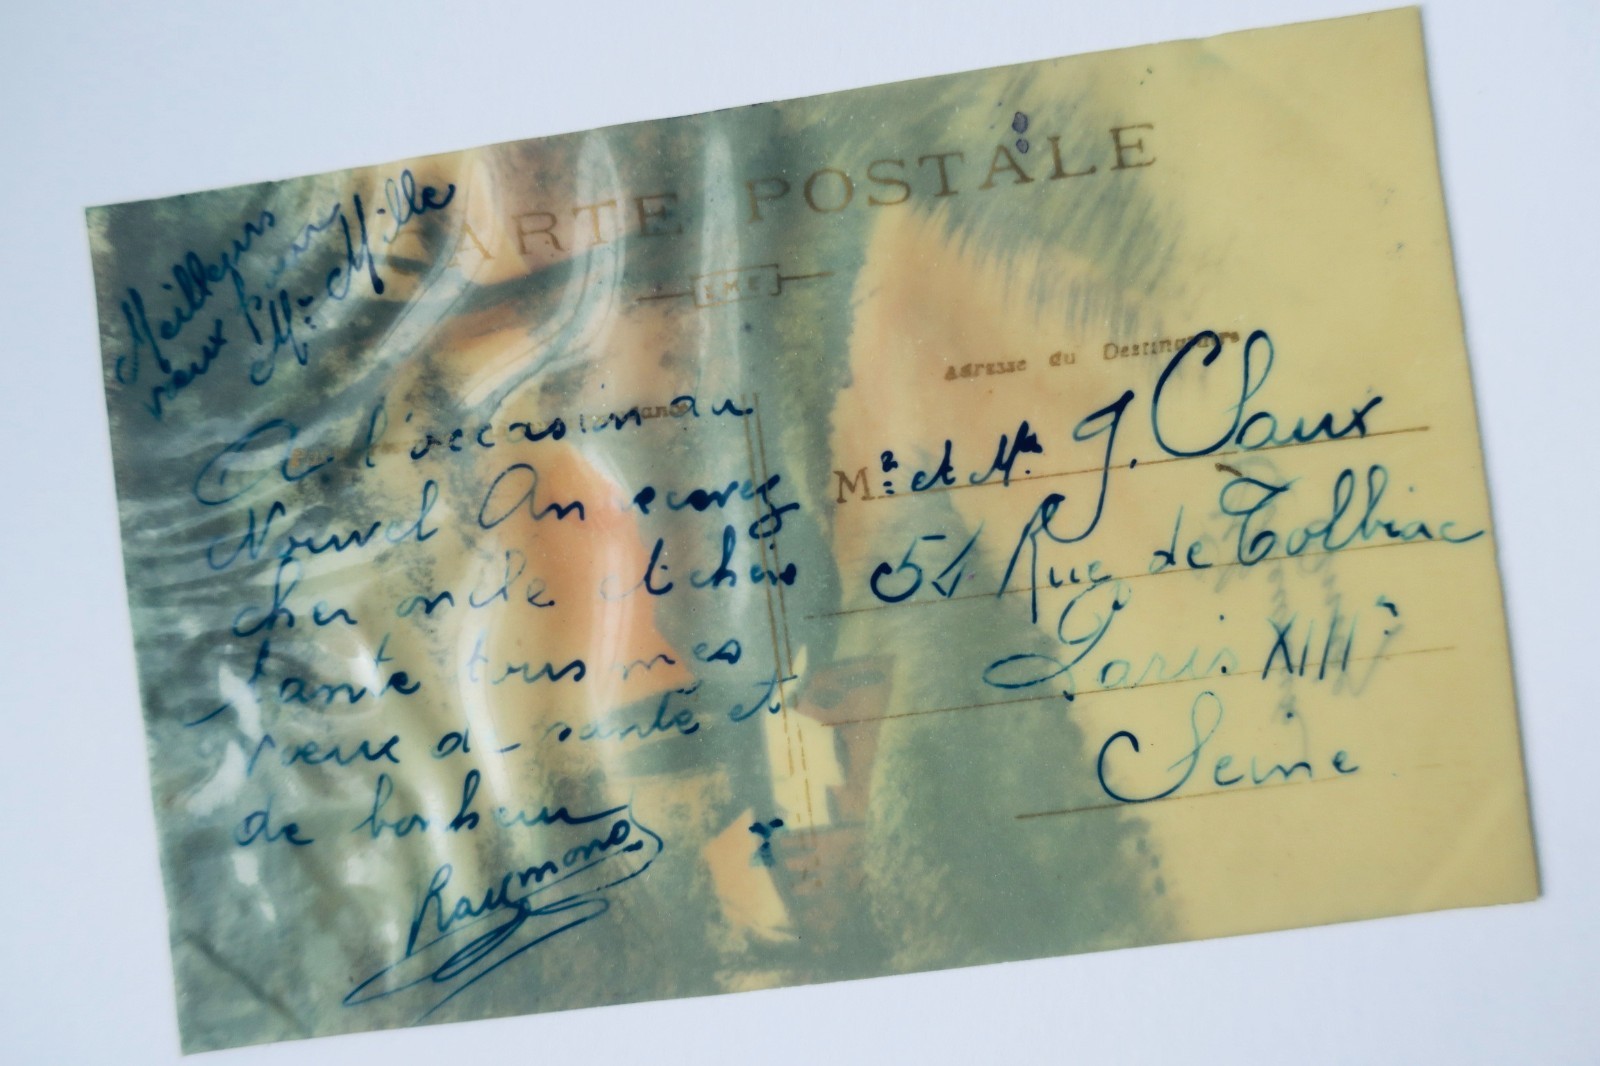 CARTE POSTALE
Meilleurs
vœux pour
Mr Mlle
A l'occasion du
Nouvel An recevez
cher oncle et chère
tante tous mes
vœux de santé et
de bonheur
Raymond
Adresse du Destinataire
Mr et Mme J. Saux
51 Rue de Tolbiac
Paris XIII
Seine